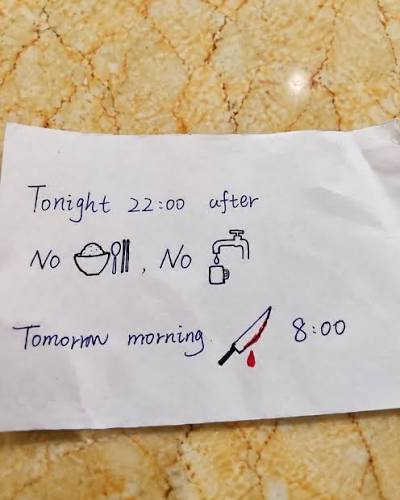 Tonight 22:00 after
No , No
Tomorrow morning 8:00